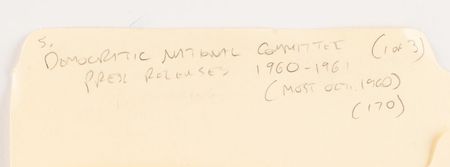 5.
DEMOCRATIC NATIONAL COMMITTEE (1 of 3)
PRESS RELEASES 1960-1961
(MOST OCT. 1960)
(170)